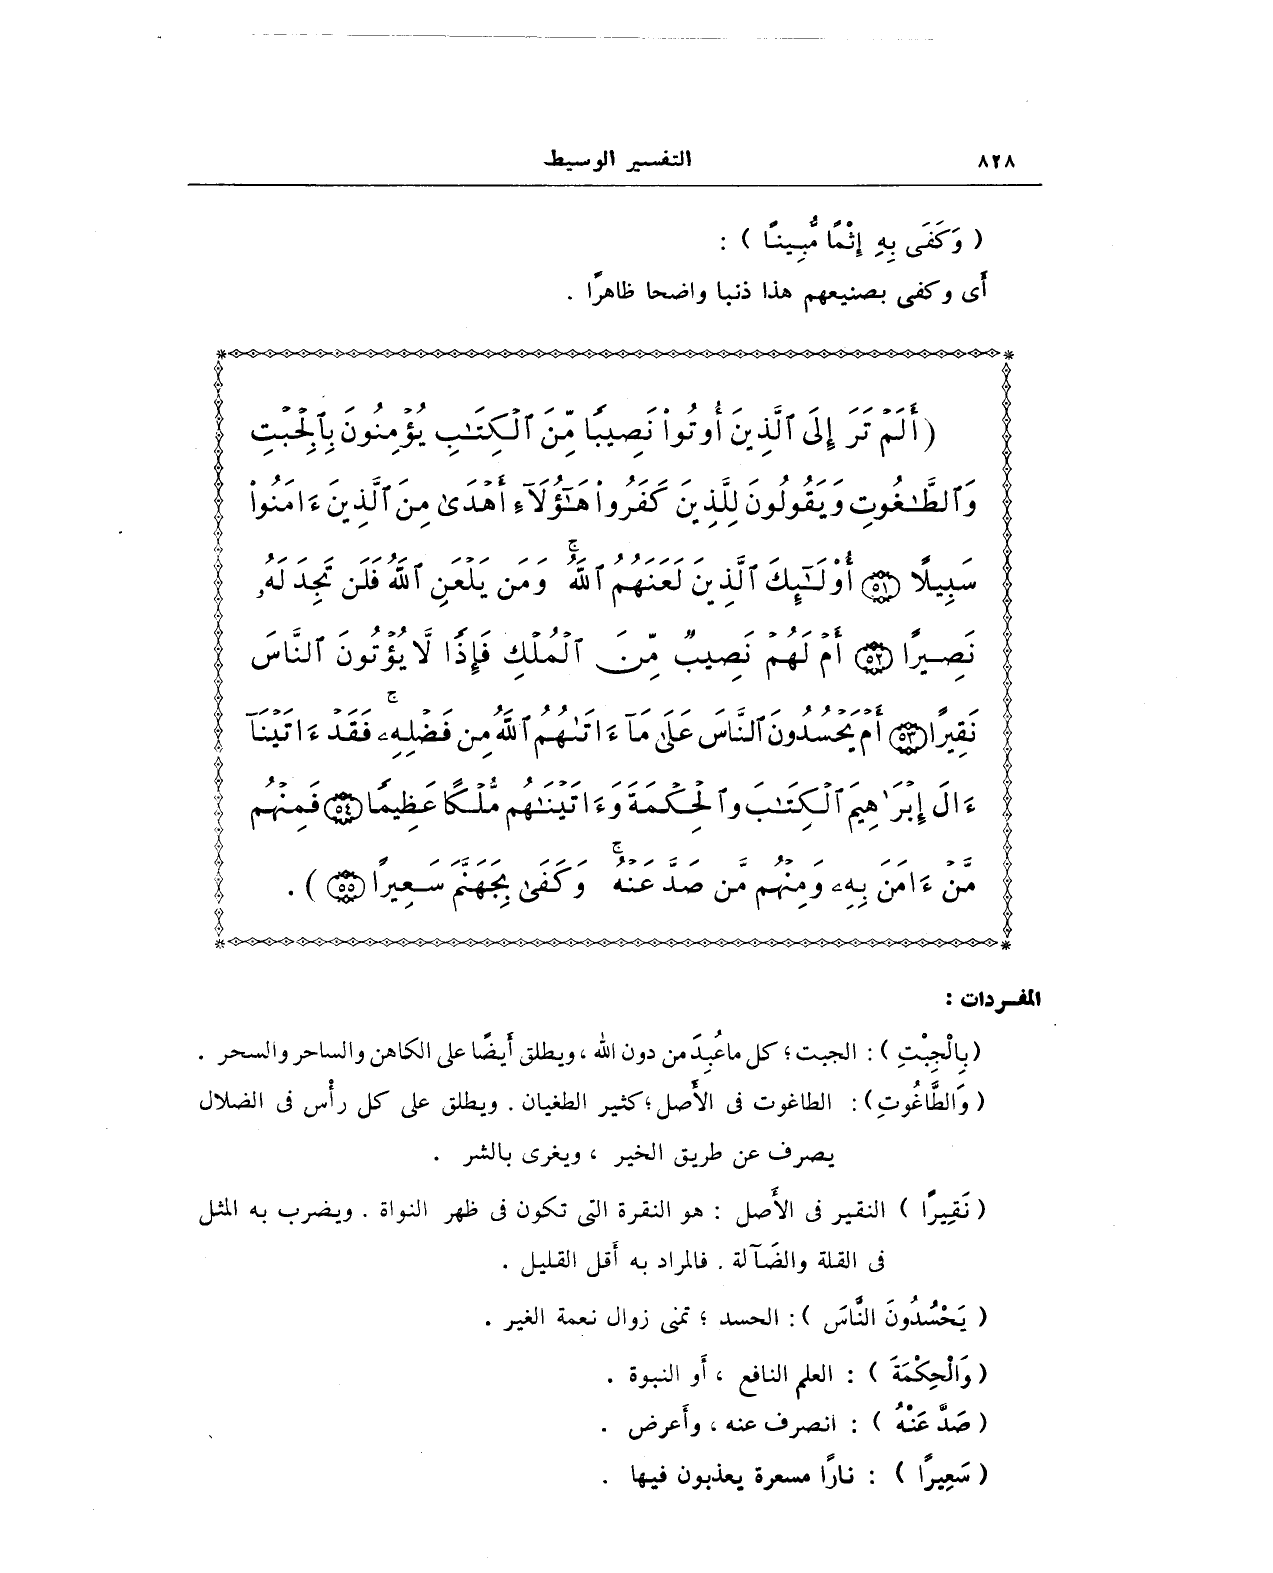 ٨٢٨
التفسير الوسيط
( وَكَفَى بِهِ إِثْمًا مُّبِينًا ) :
أَى وكفى بصنيعهم هذا ذنبا واضحا ظاهرًا .
(أَلَمْ تَرَ إِلَى ٱلَّذِينَ أُوتُوا۟ نَصِيبًا مِّنَ ٱلْكِتَٰبِ يُؤْمِنُونَ بِٱلْجِبْتِ
وَٱلطَّٰغُوتِ وَيَقُولُونَ لِلَّذِينَ كَفَرُوا۟ هَٰٓؤُلَآءِ أَهْدَىٰ مِنَ ٱلَّذِينَ ءَامَنُوا۟
سَبِيلًا ٥١ أُو۟لَٰٓئِكَ ٱلَّذِينَ لَعَنَهُمُ ٱللَّهُ ۖ وَمَن يَلْعَنِ ٱللَّهُ فَلَن تَجِدَ لَهُۥ
نَصِيرًا ٥٢ أَمْ لَهُمْ نَصِيبٌ مِّنَ ٱلْمُلْكِ فَإِذًا لَّا يُؤْتُونَ ٱلنَّاسَ
نَقِيرًا ٥٣ أَمْ يَحْسُدُونَ ٱلنَّاسَ عَلَىٰ مَآ ءَاتَىٰهُمُ ٱللَّهُ مِن فَضْلِهِۦ ۚ فَقَدْ ءَاتَيْنَآ
ءَالَ إِبْرَٰهِيمَ ٱلْكِتَٰبَ وَٱلْحِكْمَةَ وَءَاتَيْنَٰهُم مُّلْكًا عَظِيمًا ٥٤ فَمِنْهُم
مَّنْ ءَامَنَ بِهِۦ وَمِنْهُم مَّن صَدَّ عَنْهُ ۚ وَكَفَىٰ بِجَهَنَّمَ سَعِيرًا ٥٥ ) .
المفـردات :
(بِالْجِبْتِ ) : الجبت ؛ كل ما عُبِدَ من دون الله ، ويطلق أَيضًا على الكاهن والساحر والسحر .
( وَالطَّاغُوتِ) : الطاغوت فى الأَصل ؛ كثير الطغيان . ويطلق على كل رأْس فى الضلال
يصرف عن طريق الخير ، ويغرى بالشر .
( نَقِيرًا ) النقير فى الأَصل : هو النقرة التى تكون فى ظهر النواة . ويضرب به المثل
فى القلة والضَآلة . فالمراد به أَقل القليل .
( يَحْسُدُونَ النَّاسَ ) : الحسد ؛ تمنى زوال نعمة الغير .
( وَالْحِكْمَةَ ) : العلم النافع ، أَو النبوة .
( صَدَّ عَنْهُ ) : انصرف عنه ، وأَعرض .
( سَعِيرًا ) : نارًا مسعرة يعذبون فيها .